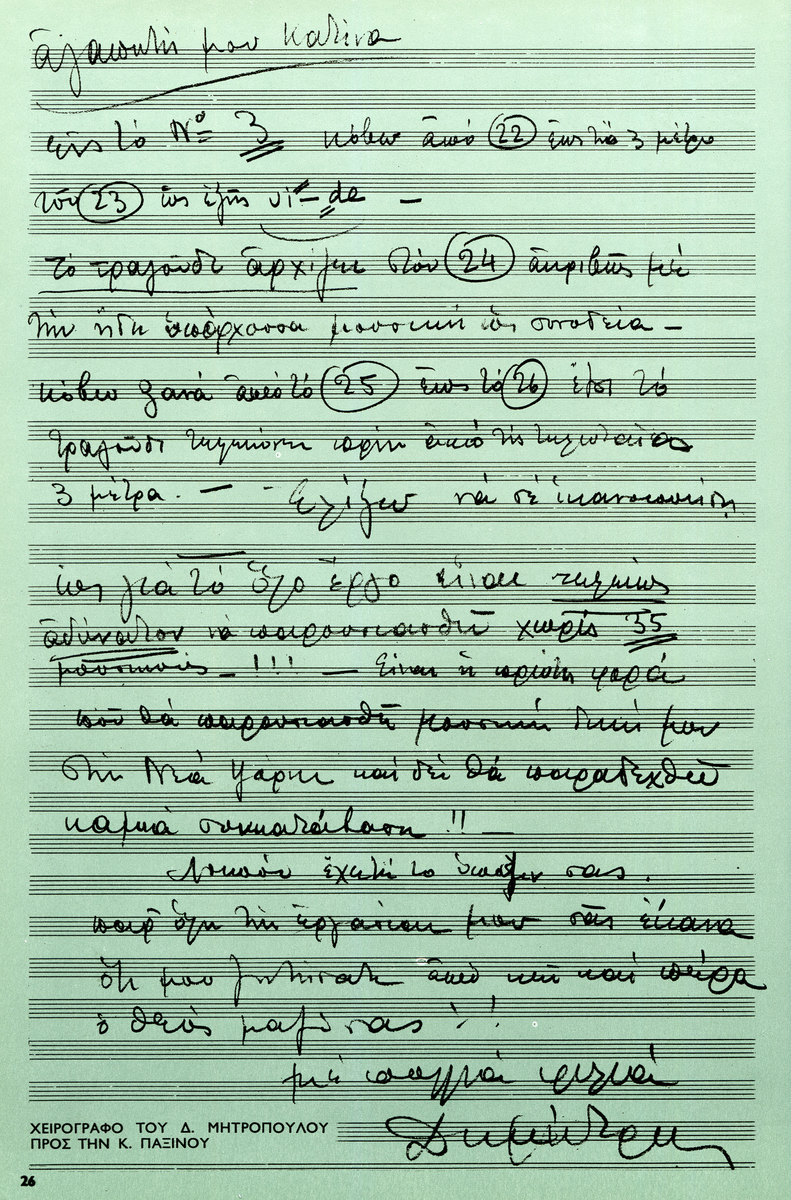 ἀγαπητή μου Κατίνα
εἰς τό Nº 3 κόβω ἀπό 22 ἕως τό 3 μέτρο
τοῦ 23 ὡς ἑξῆς vi-de –
τό τραγοῦδι ἀρχίζει στόν 24 ἀκριβῶς μέ
τήν ἤδη ὑπάρχουσα μουσική ὡς συνοδεία –
κόβω ξανά ἀπό τό 25 ἕως τό 26 ἔτσι τό
τραγοῦδι τελειώνει πρίν ἀπό τῆς τελευταίας
3 μέτρα. – – Ἐλπίζω νά σέ ἱκανοποιήση
ὡς γιά τό ὅλο ἔργο εἶναι τελείως
ἀδύνατον νά παρουσιασθῆ χωρίς 35
μουσικούς – !!! – Εἶναι ἡ πρώτη φορά
ποῦ θά παρουσιασθῆ μουσική δική μου
στή Νέα Υόρκη καί δέ θά παραδεχθῶ
καμμιά συγκατάβαση !! –
Λοιπόν ἔχετέ το ὑπ' ὄψιν σας.
παρ' ὅλη τήν ἐργασία μου σᾶς ἔκανα
ὅτι μου ζητήσατε ἀπό κεῖ καί πέρα
ὁ θεός μαζύ σας !!
μέ πολλά φιλιά
Δημήτρης
ΧΕΙΡΟΓΡΑΦΟ ΤΟΥ Δ. ΜΗΤΡΟΠΟΥΛΟΥ
ΠΡΟΣ ΤΗΝ Κ. ΠΑΞΙΝΟΥ
26